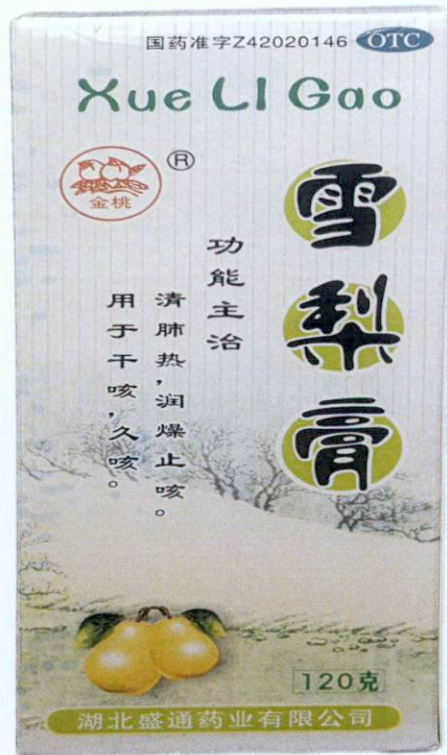 国药准字Z42020146 OTC
Xue LI Gao
®
金桃
雪梨膏
功能主治
清肺热,润燥止咳。
用于干咳,久咳。
120克
湖北盛通药业有限公司